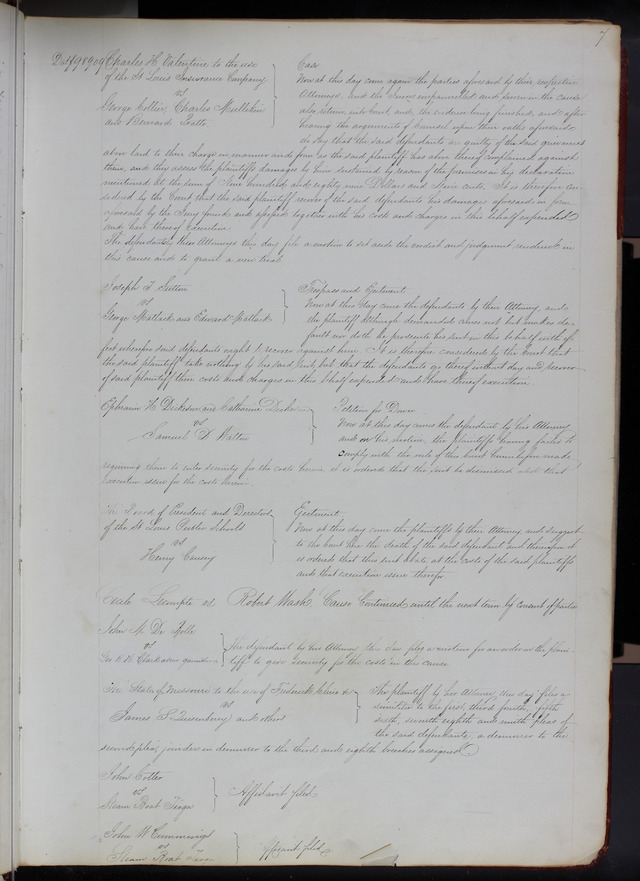 7
Charles H. Valentine to the use
of the St Louis Insurance Company
vs
George Collier, Charles Mullikin
and Bernard Pratte
Case
Now at this day come again the parties aforesaid by their respective
Attorneys, and the Jurors empannelled and sworn in the cause
also return into Court, and the evidence being finished, and after
hearing the arguments of Counsel upon their oaths aforesaid
do say that the said defendants are guilty of the said grievances
above laid to their charge in manner and form as the said plaintiff has above thereof complained against
them, and they assess the plaintiffs damages by him sustained by reason of the premises in his declaration
mentioned at the sum of hundred and eighty nine Dollars and cents. It is therefore con-
sidered by the Court that the said plaintiff recover of the said defendants his damages aforesaid in form
aforesaid by the Jury found and assessed together with his costs and charges in this behalf expended
and have thereof Execution.
The defendants by their Attorneys this day file a motion to set aside the verdict and judgment rendered in
this cause and to grant a new trial.
Joseph T. Sutton
vs
George Matlack and Edward Matlack
Trespass and Ejectment
Now at this day came the defendants by their Attorney, and
the plaintiff although demanded comes not but makes de-
fault nor doth he prosecute his suit in this behalf with ef-
fect wherefore said defendants ought to recover against him. It is therefore considered by the Court that
the said plaintiff take nothing by his said Suit, but that the defendants go thereof without day and recover
of said plaintiff their costs and charges in this behalf expended and have thereof execution.
Ephraim H. Dickson and Catharine Dickson
vs
Samuel D. Walton
Petition for Dower
Now at this day comes the defendant by his Attorney
and on his motion, the plaintiffs having failed to
comply with the rule of this Court heretofore made
requiring them to enter security for the costs herein, it is ordered that this suit be dismissed and that
execution issue for the costs herein.
The Board of President and Directors
of the St. Louis Public Schools
vs
Henry Causey
Ejectment
Now at this day come the plaintiffs by their Attorney and suggest
to the Court here the death of the said defendant and thereupon it
is ordered that this suit abate at the costs of the said plaintiffs
and that execution issue therefor.
Lumpts vs Robert Wash. Cause Continued until the next term by consent of parties
John M. De Bolle
vs
Clark
The defendant by his Attorney this day files a motion for an order on the plain-
tiff to give security for the costs in this cause
The State of Missouri to the use of Frederick
vs
James S. Quisenbury and others
The plaintiff by his Attorney this day files a
similiter to the first, third, fourth, fifth
sixth, seventh eighth and ninth pleas of
the said defendants, a demurrer to the
second plea, joinder in demurrer to the third and eighth breaches assigned
John Cotter
vs
Steam Boat
Affidavit filed
John W. Cummings
vs
Steam Boat
Affidavit filed